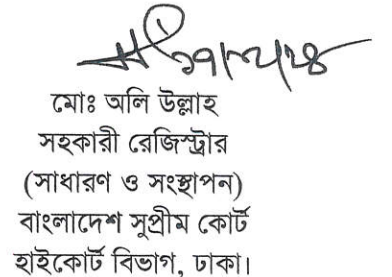 মোঃ অলি উল্লাহ
সহকারী রেজিস্ট্রার
(সাধারণ ও সংস্থাপন)
বাংলাদেশ সুপ্রীম কোর্ট
হাইকোর্ট বিভাগ, ঢাকা।